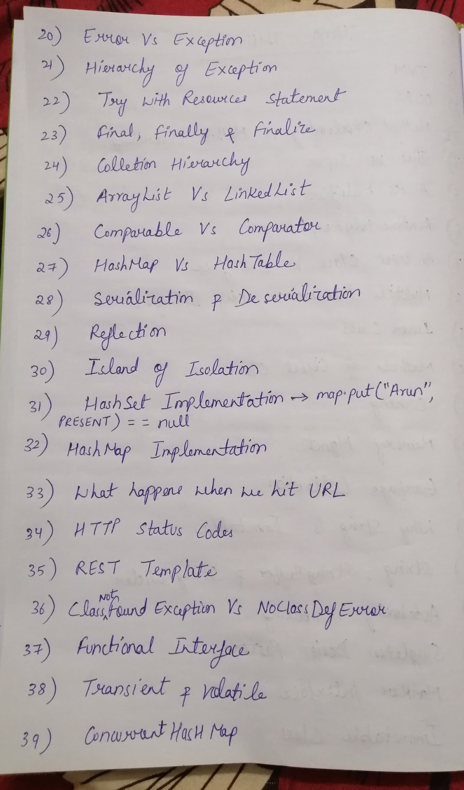 20) Error Vs Exception
21) Hierarchy of Exception
22) Try with Resources Statement
23) Final, Finally & Finalize
24) Colletion Hierarchy
25) ArrayList Vs LinkedList
26) Comparable Vs Comparator
27) HashMap Vs HashTable
28) Serialization & De serialization
29) Reflection
30) Island of Isolation
31) HashSet Implementation → map.put("Arun",
PRESENT) == null
32) HashMap Implementation
33) What happens when we hit URL
34) HTTP Status Codes
35) REST Template
36) Class Not Found Exception Vs NoClassDefError
37) Functional Interface
38) Transient & Volatile
39) Concurrent HasH Map